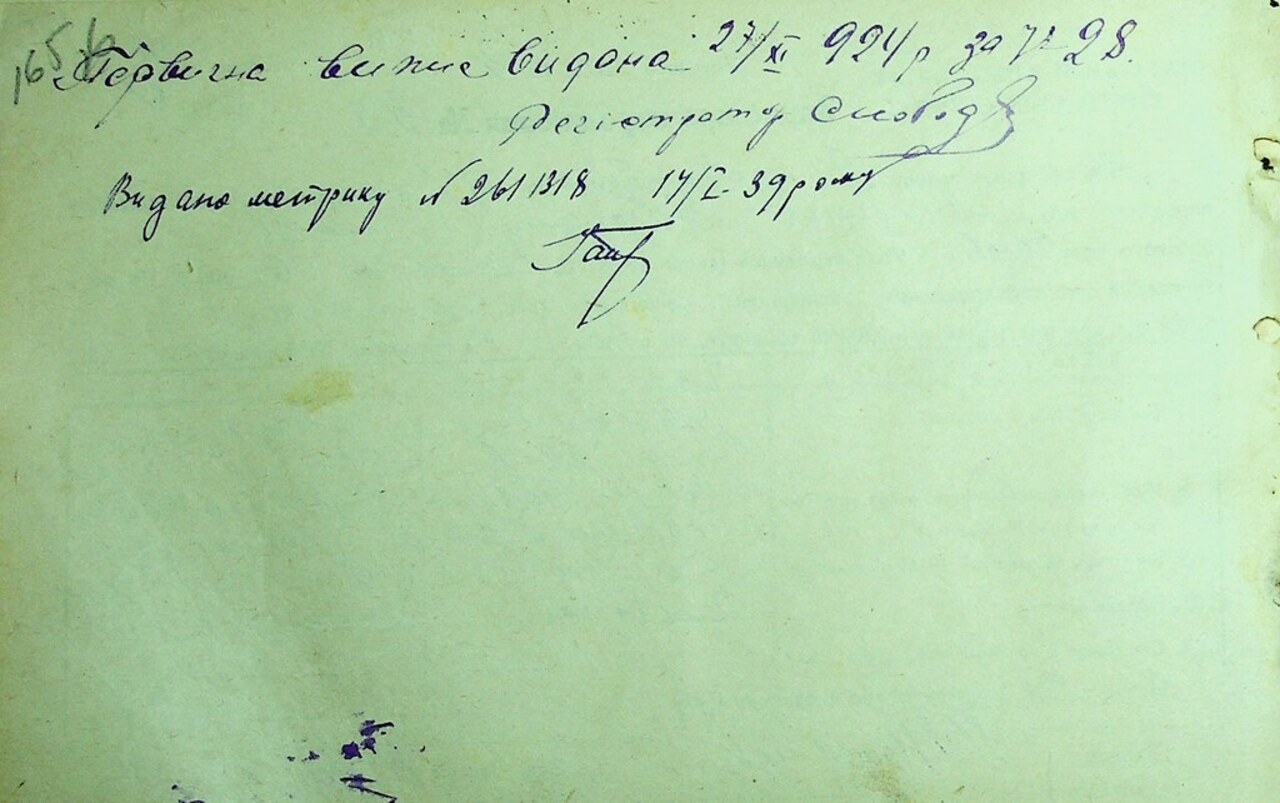 Первична випис видана 27/XI 924 р за № 28.
Регістратор Слобод
Видано метрику № 261318 17/I-39 року